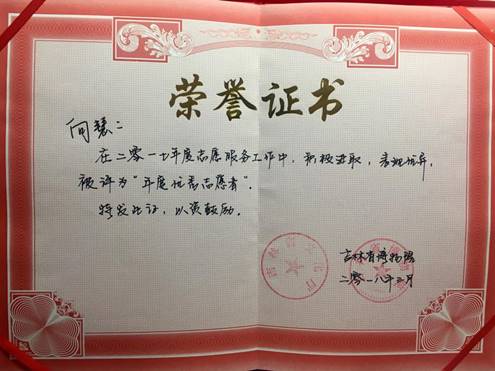 荣誉证书
向慧：
在二零一七年度志愿服务工作中，积极进取，表现优异，
被评为“年度优秀志愿者”.
特发此证，以资鼓励。
吉林省博物院
二零一八年三月